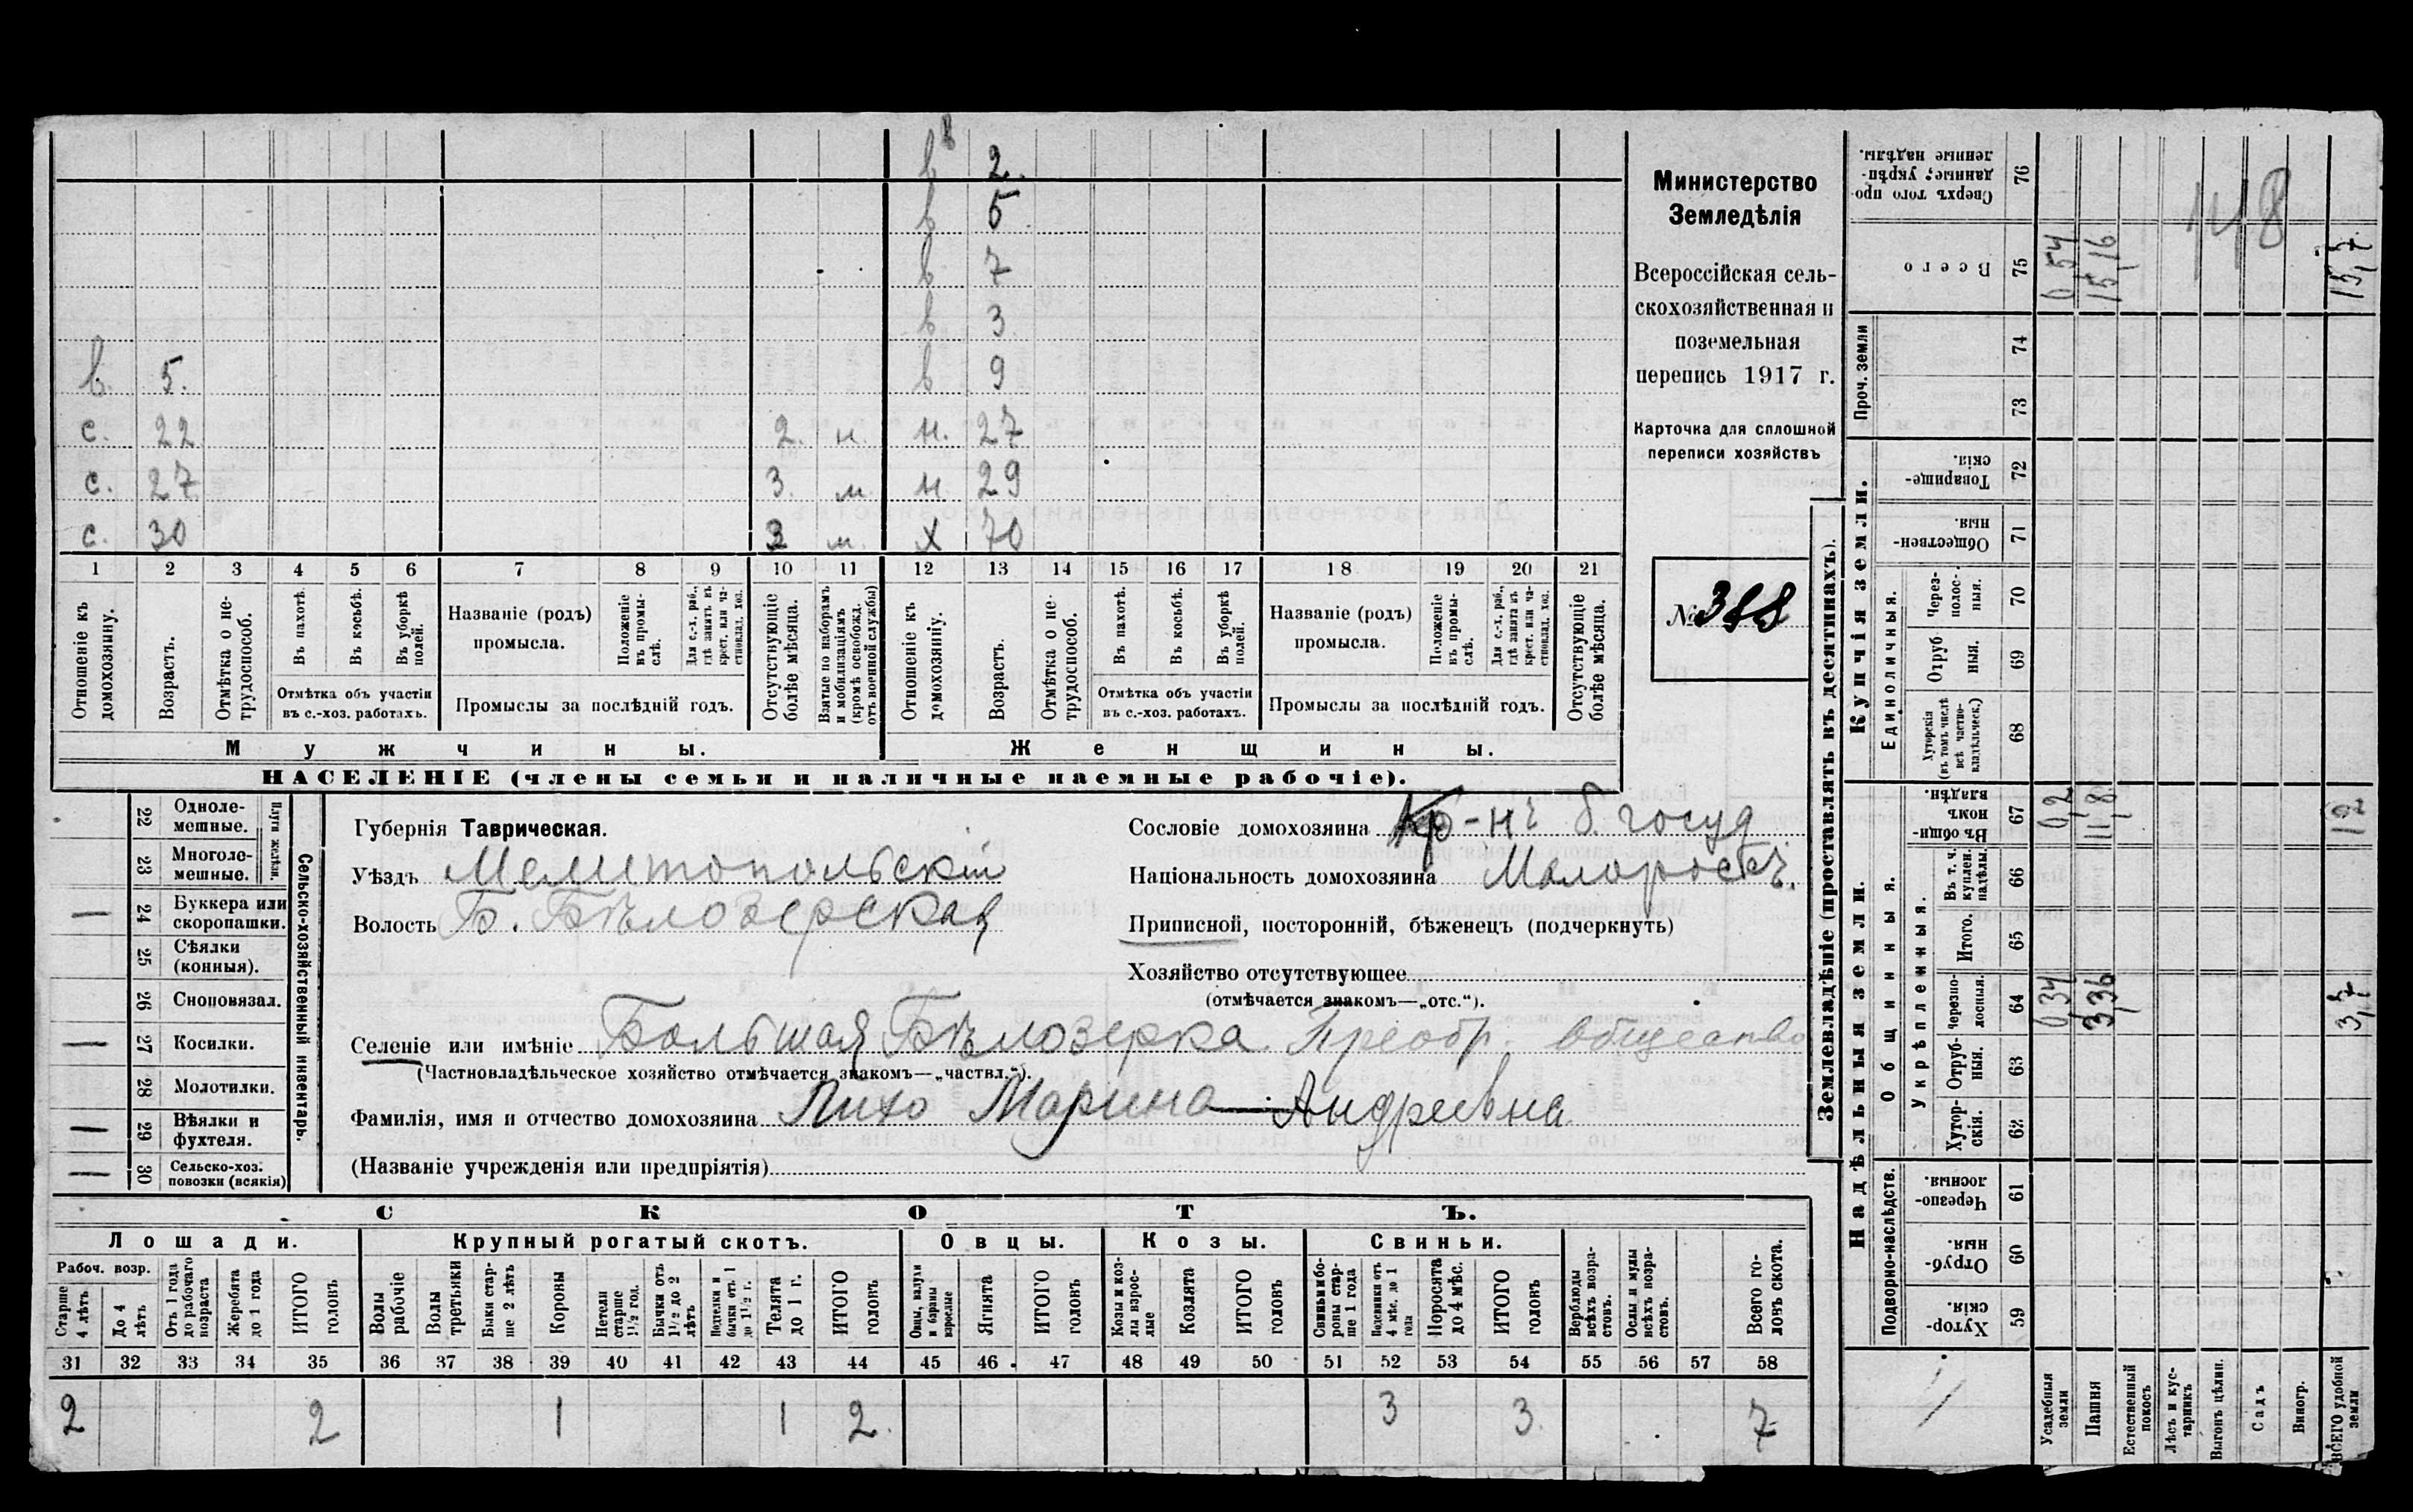 в 2.
в 5
в 7
в 3
в. 5. в 9
с. 22 2. н. н. 27
с. 27 3. м. н. 29
с. 30 3 м. х 70
1 2 3 4 5 6 7 8 9 10 11 12 13 14 15 16 17 18 19 20 21
Отношеніе къ домохозяину.
Возрастъ.
Отмѣтка о не-трудоспособ.
Въ пахотѣ.
Въ косьбѣ.
Въ уборкѣ полей.
Отмѣтка объ участіи
въ с.-хоз. работахъ.
Названіе (родъ)
промысла.
Положеніе въ промы-слѣ.
Для с.-х. раб., гдѣ занятъ въ крест. или ча-стновлад. хоз.
Промыслы за послѣдній годъ.
Отсутствующіе болѣе мѣсяца.
Взятые по наборамъ и мобилизаціямъ (кромѣ освобожд. отъ военной службы)
Отношеніе къ домохозяину.
Возрастъ.
Отмѣтка о не-трудоспособ.
Въ пахотѣ.
Въ косьбѣ.
Въ уборкѣ полей.
Отмѣтка объ участіи
въ с.-хоз. работахъ.
Названіе (родъ)
промысла.
Положеніе въ промы-слѣ.
Для с.-х. раб., гдѣ занятъ въ крест. или ча-стновлад. хоз.
Промыслы за послѣдній годъ.
Отсутствующіе болѣе мѣсяца.
Мужчины. Женщины.
НАСЕЛЕНІЕ (члены семьи и наличные наемные рабочіе).
Министерство
Земледѣлія
Всероссійская сель-
скохозяйственная и
поземельная
перепись 1917 г.
Карточка для сплошной
переписи хозяйствъ
№ 388
22 Одноле-мешные.
23 Многоле-мешные.
Плуги желѣзн.
24 Буккера или скоропашки.
25 Сѣялки (конныя).
26 Сноповязал.
27 Косилки.
28 Молотилки.
29 Вѣялки и фухтеля.
30 Сельско-хоз. повозки (всякія)
Сельско-хозяйственный инвентарь.
Губернія Таврическая.
Уѣздъ Мелитопольскій
Волость Б. Бѣлозерская
Сословіе домохозяина Кр-нъ б. госуд
Національность домохозяина Малоросъ.
Приписной, посторонній, бѣженецъ (подчеркнуть)
Хозяйство отсутствующее
(отмѣчается знакомъ—„отс.“).
Селеніе или имѣніе Большая Бѣлозерка Преобр. общество
(Частновладѣльческое хозяйство отмѣчается знакомъ—„частвл.“).
Фамилія, имя и отчество домохозяина Лихо Марина Андреевна
(Названіе учрежденія или предпріятія)
СКОТЪ.
Лошади. Крупный рогатый скотъ. Овцы. Козы. Свиньи.
Рабоч. возр.
Старше 4 лѣтъ
До 4 лѣтъ
Отъ 1 года до рабочаго возраста
Жеребята до 1 года
ИТОГО головъ
Волы рабочіе
Волы третьяки
Быки стар-ше 2 лѣтъ
Коровы
Нетели старше 1½ год.
Бычки отъ 1½ до 2 лѣтъ
Подтелки и бычки отъ 1 до 1½ г.
Телята до 1 г.
ИТОГО головъ
Овцы, валухи и бараны взрослые
Ягнята
ИТОГО головъ
Козы и коз-лы взрос-лые
Козлята
ИТОГО головъ
Свиньи и бо-ровы стар-ше 1 года
Подсвинки отъ 4 мѣс. до 1 года
Поросята до 4 мѣс.
ИТОГО головъ
Верблюды всѣхъ возра-стовъ.
Ослы и мулы всѣхъ возра-стовъ.
Всего го-ловъ скота.
31 32 33 34 35 36 37 38 39 40 41 42 43 44 45 46 47 48 49 50 51 52 53 54 55 56 57 58
2 2 1 1 2. 3 3. 7
Землевладѣніе (проставлять въ десятинахъ).
Надѣльныя земли. Купчія земли. Проч. земли
Подворно-наслѣдств. Общинныя. Единоличныя.
Укрѣпленныя.
Хутор-скія. 59
Отруб-ныя. 60
Черезпо-лосныя. 61
Хутор-скія. 62
Отруб-ныя. 63
Черезпо-лосныя. 64
Итого. 65
Въ т. ч. куплен. надѣлы. 66
Въ общи-номъ владѣн. 67
Хуторскія (въ томъ числѣ всѣ частно-владѣльческ.) 68
Отруб-ныя. 69
Через-полос-ныя. 70
Обществен-ныя. 71
Товарище-скія. 72
73
74
Всего 75
Сверхъ того про-данные, укрѣп-ленные надѣлы. 76
Усадебныя земли 0,34 0,2 0,54
Пашня 3,36 11,8 15,16
Естественный покосъ
Лѣсъ и кус-тарникъ
Выгонъ цѣлин.
Садъ
Виногр.
ВСЕГО удобной земли 3,7 12 15,7
118